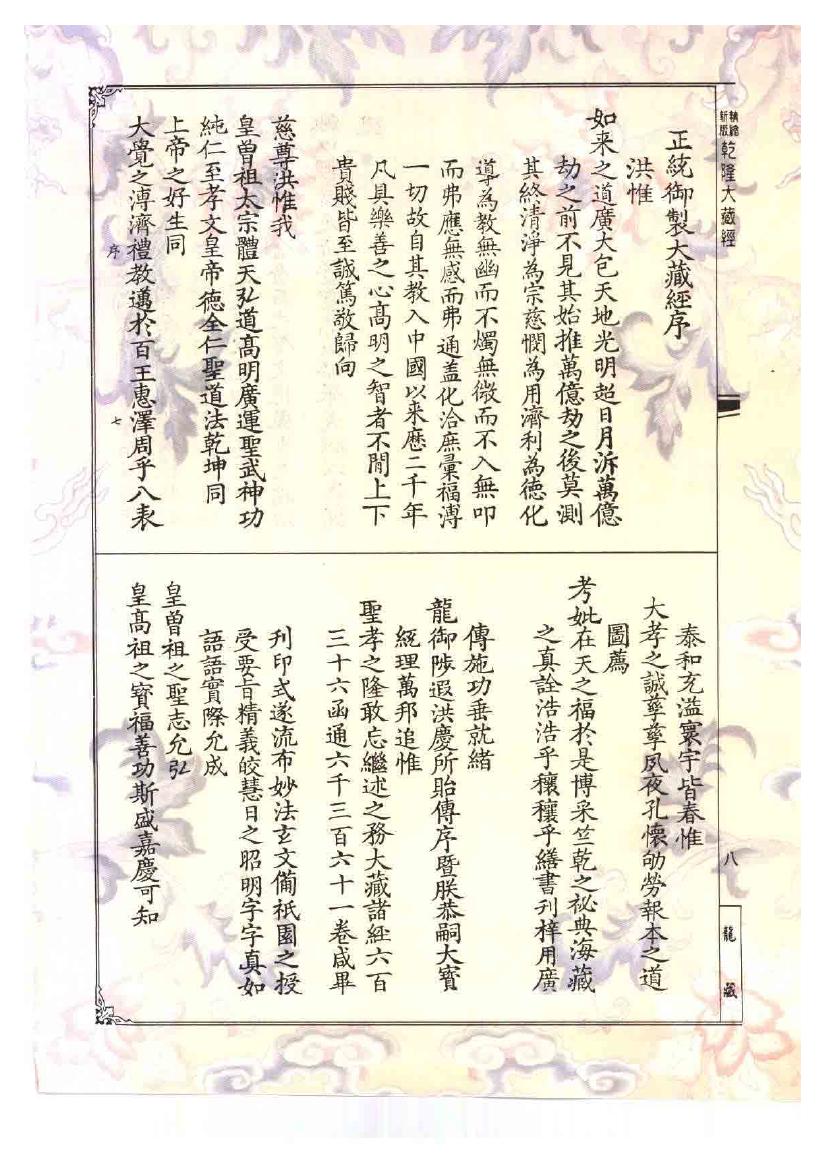 精繕
新版
乾隆大藏經
正統御製大藏經序
洪惟
如来之道廣大包天地光明超日月泝萬億
劫之前不見其始推萬億劫之後莫測
其終清淨為宗慈憫為用濟利為德化
導為教無幽而不燭無微而不入無叩
而弗應無感而弗通盖化洽庶彙福溥
一切故自其教入中國以来歷二千年
凡具樂善之心髙明之智者不閒上下
貴賤皆至誠篤敬歸向
慈尊洪惟我
皇曽祖太宗體天弘道髙明廣運聖武神功
純仁至孝文皇帝德全仁聖道法乾坤同
上帝之好生同
大覺之溥濟禮教邁扵百王惠澤周乎八表
序
七
泰和充溢寰宇皆春惟
大孝之誠孳孳夙夜孔懷劬勞報本之道
圖薦
考妣在天之福於是博采竺乾之祕典海藏
之真詮浩浩乎穰穰乎繕書刊梓用廣
傳施功垂就緒
龍御陟遐洪慶所貽傳序暨朕恭嗣大寶
統理萬邦追惟
聖孝之隆敢忘繼述之務大藏諸經六百
三十六函通六千三百六十一卷咸畢
刋印式遂流布妙法玄文備祇園之授
受要旨精義皎慧日之昭明字字真如
語語實際允成
皇曽祖之聖志允弘
皇髙祖之寳福善功斯盛嘉慶可知
八
龍藏